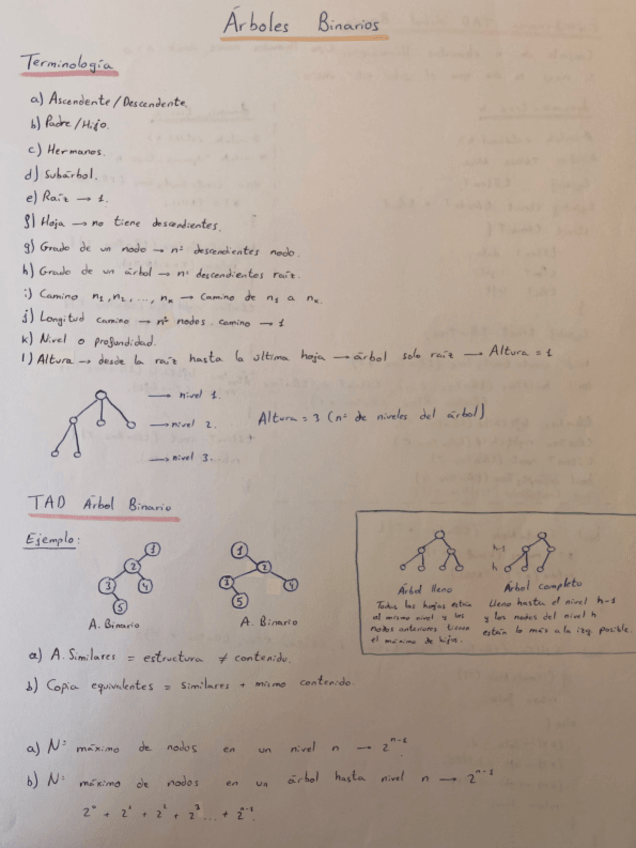 Árboles Binarios
Terminología
a) Ascendente / Descendente.
b) Padre / Hijo.
c) Hermanos.
d) Subárbol.
e) Raíz → 1.
f) Hoja → no tiene descendientes.
g) Grado de un nodo → nº descendientes nodo.
h) Grado de un árbol → nº descendientes raíz.
i) Camino n1, n2, ..., nk → Camino de n1 a nk.
j) Longitud camino → nº nodos camino → 1
k) Nivel o profundidad.
l) Altura → desde la raíz hasta la ultima hoja → árbol solo raíz → Altura = 1
→ nivel 1.
→ nivel 2. Altura = 3 (nº de niveles del árbol)
→ nivel 3.
TAD Árbol Binario
Ejemplo:
1 2 3 4 5
A. Binario
1 2 3 4 5
A. Binario
h-1
h
Árbol lleno
Todas las hojas están
al mismo nivel y los
nodos anteriores tienen
el máximo de hijos.
Árbol completo
Lleno hasta el nivel h-1
y los nodos del nivel h
están lo más a la izq. posible.
a) A. Similares = estructura ≠ contenido.
b) Copia equivalentes = Similares + mismo contenido.
a) Nº máximo de nodos en un nivel n → 2^n-1
b) Nº máximo de nodos en un árbol hasta nivel n → 2^n-1
2^0 + 2^1 + 2^2 + 2^3 ... + 2^n-1.